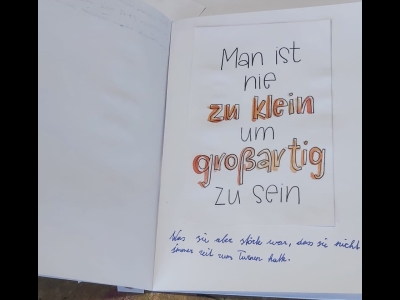 Man ist
nie
zu klein
um
großartig
zu sein
Was sie aber störte war, dass sie nicht
immer zeit zum Turnen hatte.